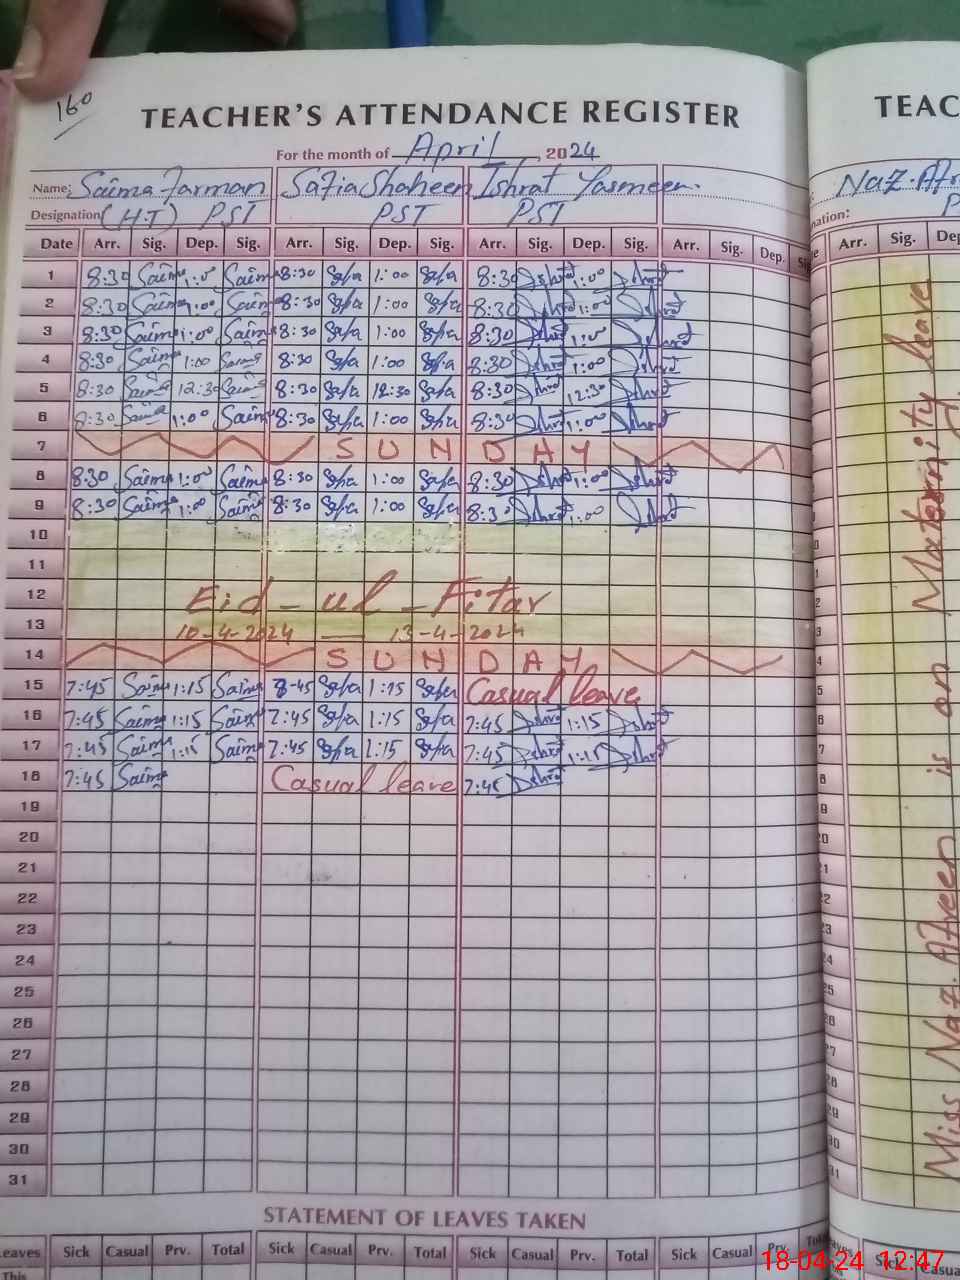 160
TEACHER'S ATTENDANCE REGISTER TEAC
For the month of April, 2024
Name: Saima Farman Safia Shaheen Ishrat Yasmeen. Naz. Afr
Designation: (H.T) PST PST PST nation: P
Date Arr. Sig. Dep. Sig. Arr. Sig. Dep. Sig. Arr. Sig. Dep. Sig. Arr. Sig. Dep. Sig. Arr. Sig. Dep
1 8:30 Saima 1:00 Saima 8:30 Safia 1:00 Safia 8:30 Ishrat 1:00 Ishrat
2 8:30 Saima 1:00 Saima 8:30 Safia 1:00 Safia 8:30 Ishrat 1:00 Ishrat
3 8:30 Saima 1:00 Saima 8:30 Safia 1:00 Safia 8:30 Ishrat 1:0 Ishrat
4 8:30 Saima 1:00 Saima 8:30 Safia 1:00 Safia 8:30 Ishrat 1:00 Ishrat
5 8:30 Saima 12:30 Saima 8:30 Safia 12:30 Safia 8:30 Ishrat 12:30 Ishrat
6 8:30 Saima 1:00 Saima 8:30 Safia 1:00 Safia 8:30 Ishrat 1:00 Ishrat
7 SUNDAY
8 8:30 Saima 1:00 Saima 8:30 Safia 1:00 Safia 8:30 Ishrat 1:00 Ishrat
9 8:30 Saima 1:00 Saima 8:30 Safia 1:00 Safia 8:30 Ishrat 1:00 Ishrat
10
11
12 Eid-ul-Fitar
13 10-4-2024 — 13-4-2024
14 SUNDAY
15 7:45 Saima 1:15 Saima 7-45 Safia 1:15 Safia Casual leave
16 7:45 Saima 1:15 Saima 7:45 Safia 1:15 Safia 7:45 Ishrat 1:15 Ishrat
17 7:45 Saima 1:15 Saima 7:45 Safia 1:15 Safia 7:45 Ishrat 1:15 Ishrat
18 7:45 Saima Casual leave 7:45 Ishrat
19
20
21
22
23
24
25
26
27
28
29
30
31
Miss Naz. Afreen is on Maternity leave
STATEMENT OF LEAVES TAKEN
Leaves Sick Casual Prv. Total Sick Casual Prv. Total Sick Casual Prv. Total Sick Casual Prv. Total Sick Casua
This
18-04-24 12:47